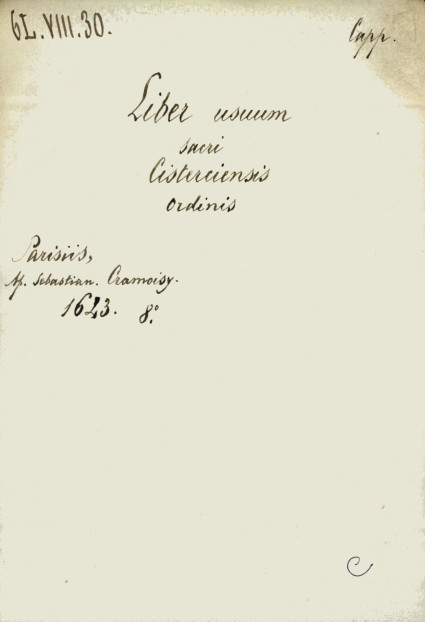 6L.VIII.30.
Capp.
Liber usuum
sacri
Cisterciensis
ordinis
Parisiis,
Ap. Sebastian. Cramoisy.
1643. 8.°